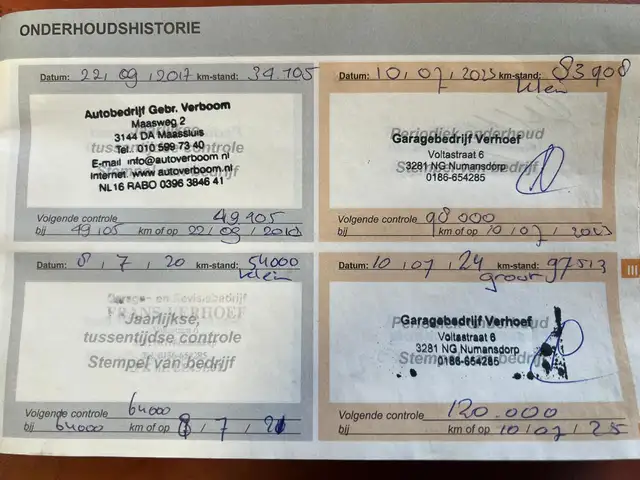 ONDERHOUDSHISTORIE
Datum: 22 / 09 / 2017 km-stand: 34.105
Autobedrijf Gebr. Verboom
Maasweg 2
3144 DA Maassluis
Tel. 010 599 73 40
tussentijdse controle
E-mail info@autoverboom.nl
Stempel van bedrijf
Internet www.autoverboom.nl
NL 16 RABO 0396 3846 41
Volgende controle 49105
bij 49105 km of op 22 / 09 /
Datum: 10 / 07 / 2023 km-stand: 83908
klein
Periodiek onderhoud
Garagebedrijf Verhoef
Voltastraat 6
3281 NG Numansdorp
Stempel van bedrijf
0186-654285
Volgende controle 98000
bij km of op 10 / 07 /
Datum: 8 / 7 / 20 km-stand: 54000
klein
Garage- en Revisiebedrijf
FRANS VERHOEF
Jaarlijkse,
tussentijdse controle
Stempel van bedrijf
Volgende controle 64000
bij 64000 km of op 8 / 7 / 21
Datum: 10 / 07 / 24 km-stand: 97513
groot
Garagebedrijf Verhoef
Voltastraat 6
3281 NG Numansdorp
Stempel van bedrijf
0186-654285
Volgende controle 120.000
bij km of op 10 / 07 / 25
III